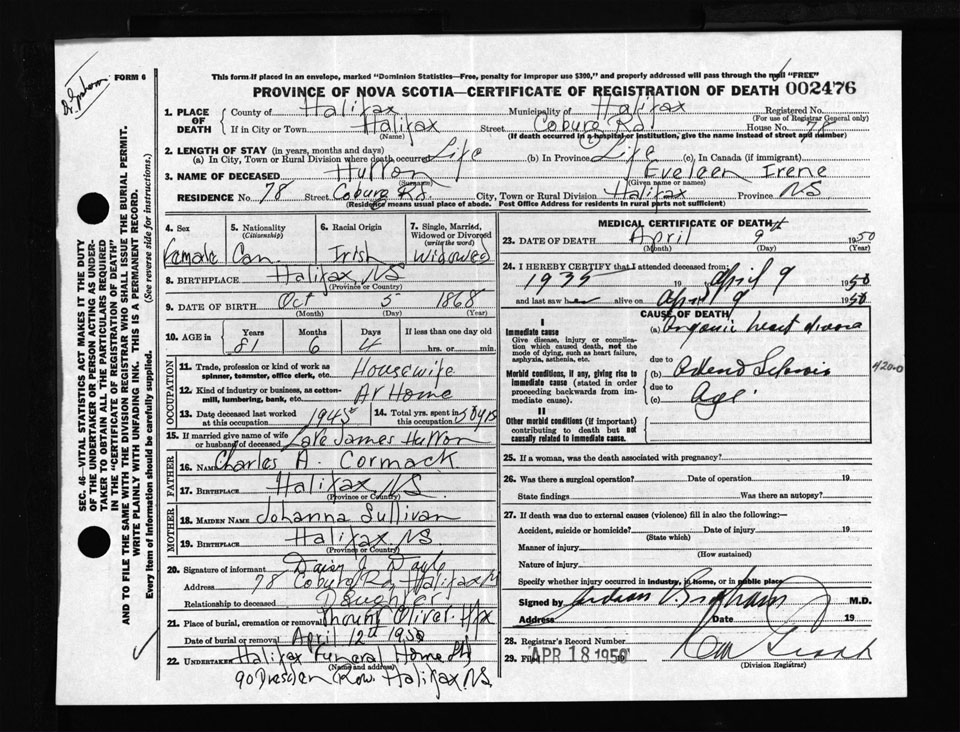 Dr. Graham
FORM 6
This form if placed in an envelope, marked "Dominion Statistics—Free, penalty for improper use $300," and properly addressed will pass through the mail "FREE"
PROVINCE OF NOVA SCOTIA—CERTIFICATE OF REGISTRATION OF DEATH 002476
1. PLACE OF DEATH County of Halifax Municipality of Halifax Registered No. (For use of Registrar General only)
If in City or Town Halifax (Name) Street Coburg Rd House No. 78
(If death occurred in a hospital or institution, give the name instead of street and number)
2. LENGTH OF STAY (in years, months and days)
(a) In City, Town or Rural Division where death occurred Life (b) In Province Life (c) In Canada (if immigrant)
3. NAME OF DECEASED Hutton (Surname) Eveleen Irene (Given name or names)
RESIDENCE No. 78 Street Coburg Rd. City, Town or Rural Division Halifax Province NS
(Residence means usual place of abode. Post Office Address for residents in rural parts not sufficient)
4. Sex Female
5. Nationality (Citizenship) Can.
6. Racial Origin Irish
7. Single, Married, Widowed or Divorced (write the word) Widowed
8. BIRTHPLACE Halifax, NS (Province or Country)
9. DATE OF BIRTH Oct (Month) 5 (Day) 1868 (Year)
10. AGE in Years 81 Months 6 Days 4 If less than one day old hrs. or min.
OCCUPATION
11. Trade, profession or kind of work as spinner, teamster, office clerk, etc. Housewife
12. Kind of industry or business, as cotton-mill, lumbering, bank, etc. At Home
13. Date deceased last worked at this occupation 1945 14. Total yrs. spent in this occupation 50 yrs
15. If married give name of wife or husband of deceased Late James Hutton
FATHER
16. Name Charles A. Cormack
17. BIRTHPLACE Halifax NS. (Province or Country)
MOTHER
18. MAIDEN NAME Johanna Sullivan
19. BIRTHPLACE Halifax, NS. (Province or Country)
20. Signature of informant Daisy J. Doyle
Address 78 Coburg Rd, Halifax N
Relationship to deceased Daughter
21. Place of burial, cremation or removal Mount Olivet Hfx
Date of burial or removal April 12th 1950
22. UNDERTAKER Halifax Funeral Home
(Name and address)
90 Dresden Row. Halifax, NS.
MEDICAL CERTIFICATE OF DEATH
23. DATE OF DEATH April (Month) 9th (Day) 1950 (Year)
24. I HEREBY CERTIFY that I attended deceased from:
1935 19 April 9 1950
and last saw her alive on April 9 1950
CAUSE OF DEATH
I
Immediate cause
Give disease, injury or complication which caused death, not the mode of dying, such as heart failure, asphyxia, asthenia, etc.
(a) Organic heart disease
due to
Morbid conditions, if any, giving rise to immediate cause (stated in order proceeding backwards from immediate cause).
(b)
due to
(c) Age
4200
II
Other morbid conditions (if important) contributing to death but not causally related to immediate cause.
25. If a woman, was the death associated with pregnancy?
26. Was there a surgical operation? Date of operation 19
State findings Was there an autopsy?
27. If death was due to external causes (violence) fill in also the following:—
Accident, suicide or homicide? (State which) Date of injury 19
Manner of injury (How sustained)
Nature of injury
Specify whether injury occurred in industry, in home, or in public place
Signed by M.D.
Address Date 19
28. Registrar's Record Number
29. Filed APR 18 1950
(Division Registrar)
SEC. 46—VITAL STATISTICS ACT MAKES IT THE DUTY OF THE UNDERTAKER OR PERSON ACTING AS UNDERTAKER TO OBTAIN ALL THE PARTICULARS REQUIRED IN THE "CERTIFICATE OF REGISTRATION OF DEATH" AND TO FILE THE SAME WITH THE DIVISION REGISTRAR WHO SHALL ISSUE THE BURIAL PERMIT.
WRITE PLAINLY WITH UNFADING INK. THIS IS A PERMANENT RECORD.
Every item of information should be carefully supplied. (See reverse side for instructions.)